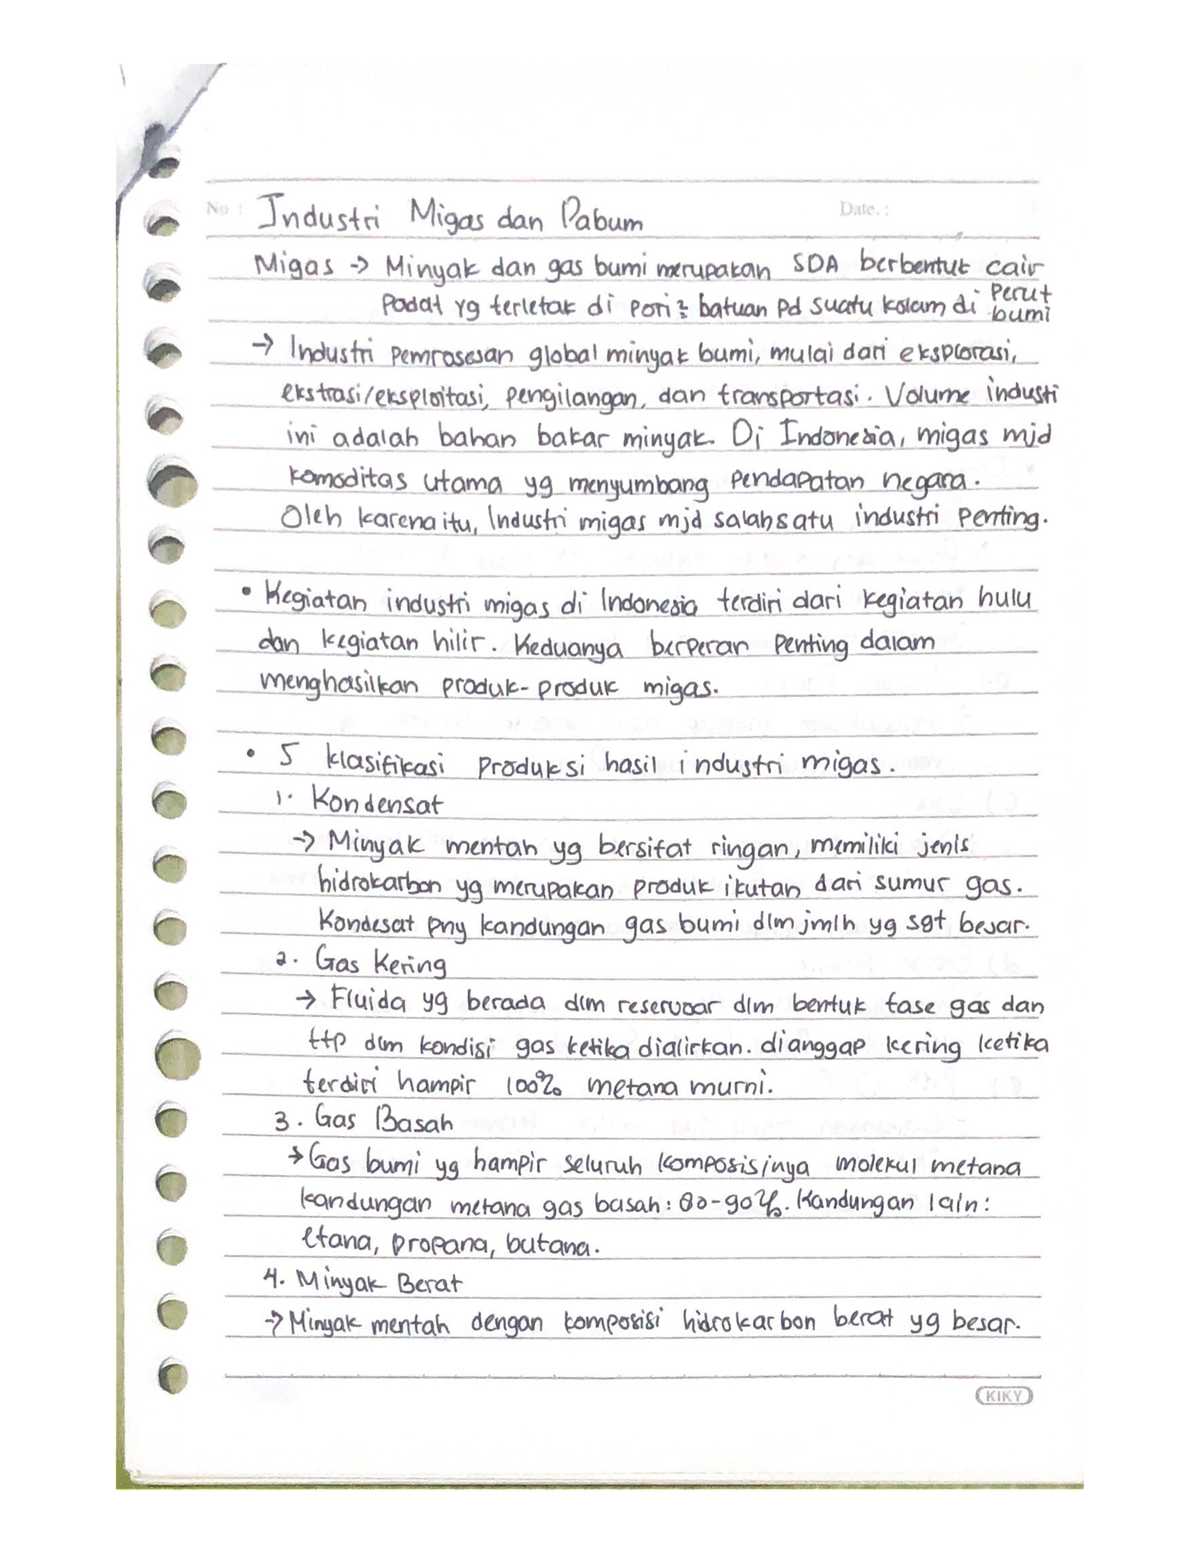 No :
Date. :
Industri Migas dan Pabum
Migas → Minyak dan gas bumi merupakan SDA berbentuk cair
padat yg terletak di pori² batuan pd suatu kolam di perut bumi
→ Industri pemrosesan global minyak bumi, mulai dari eksplorasi,
ekstrasi/eksploitasi, pengilangan, dan transportasi. Volume industi
ini adalah bahan bakar minyak. Di Indonesia, migas mjd
komoditas utama yg menyumbang pendapatan negara.
Oleh karena itu, Industri migas mjd salah satu industri penting.
• Kegiatan industri migas di Indonesia terdiri dari kegiatan hulu
dan kegiatan hilir. Keduanya berperan penting dalam
menghasilkan produk-produk migas.
• 5 klasifikasi produksi hasil industri migas.
1. Kondensat
→ Minyak mentah yg bersifat ringan, memiliki jenis
hidrokarbon yg merupakan produk ikutan dari sumur gas.
Kondesat pny kandungan gas bumi dlm jmlh yg sgt besar.
2. Gas Kering
→ Fluida yg berada dlm reservoar dlm bentuk fase gas dan
ttp dlm kondisi gas ketika dialirkan. dianggap kering ketika
terdiri hampir 100% metana murni.
3. Gas Basah
→ Gas bumi yg hampir seluruh komposisinya molekul metana
kandungan metana gas basah : 80-90%. Kandungan lain :
etana, propana, butana.
4. Minyak Berat
→ Minyak mentah dengan komposisi hidrokarbon berat yg besar.
KIKY